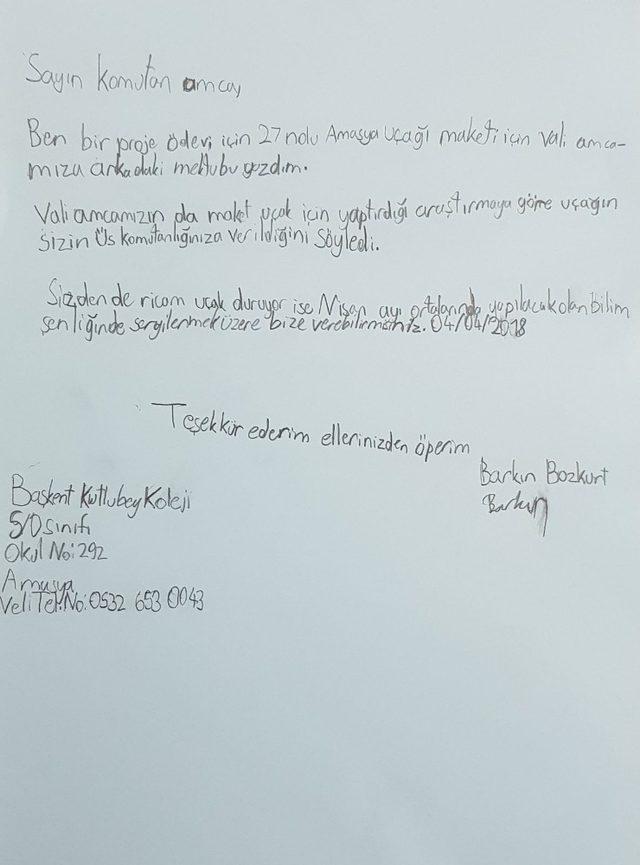 Sayın komutan amca,
Ben bir proje ödevi için 27 nolu Amasya Uçağı maketi için Vali amca-
mıza arkadaki mektubu yazdım.
Vali amcamızın da maket uçak için yaptırdığı araştırmaya göre uçağın
sizin Üs komutanlığınıza verildiğini söyledi.
Sizden de ricam uçak duruyor ise Nisan ayı ortalarında yapılacak olan bilim
şenliğinde sergilenmek üzere bize verebilirmisiniz. 04/04/2018
Teşekkür ederim ellerinizden öperim
Barkın Bozkurt
Barkın
Başkent Kutlubey Koleji
5/D sınıfı
Okul No: 292
Amasya
Veli Tel.No: 0532 653 0043